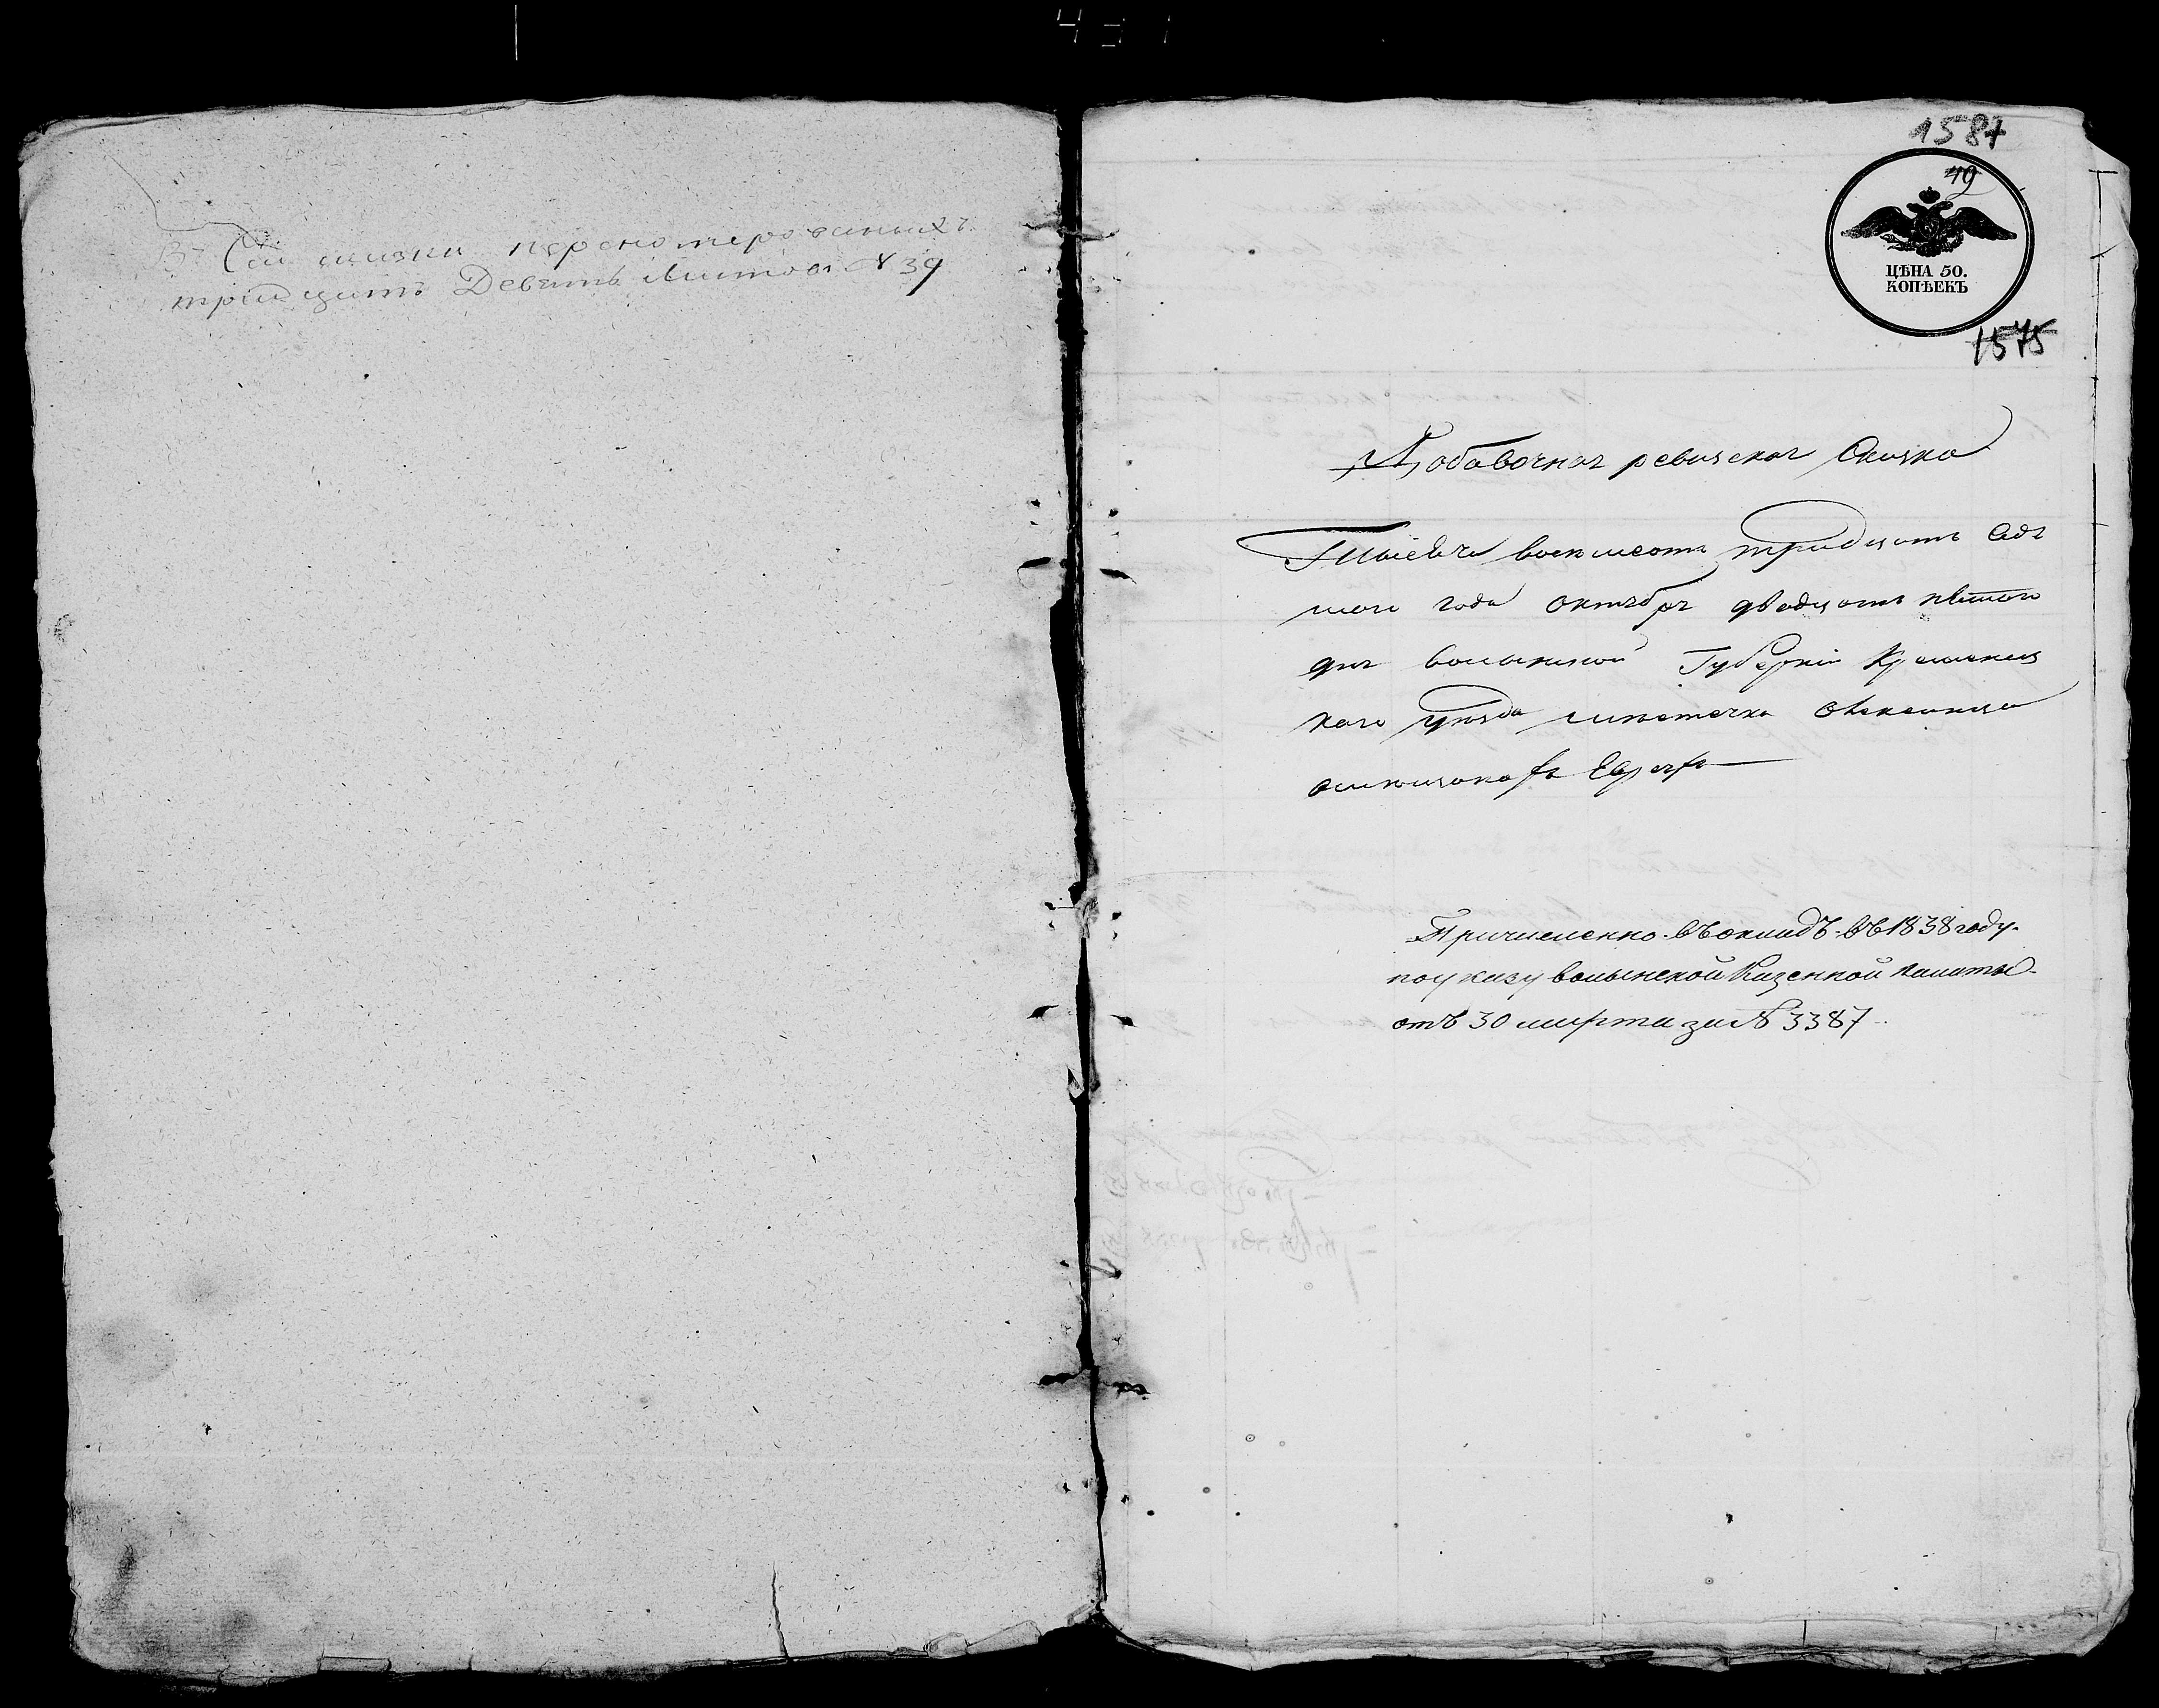 431
В Сей сказки перенумерованныхъ
тридцать Девять Листовъ № 39
1587
49
ЦѢНА 50.
КОПѢЕКЪ
1575
Добавочная ревизская Сказка
Тысеча восемсотъ тридцать Седь
мого года октября двадцать пятого
дня волынской Губерніи Кременец
кого уезда местечка
о Евреяхъ
Причислено въ окладъ въ 1838 году
по указу волынской Казенной палаты
отъ 30 марта за № 3387